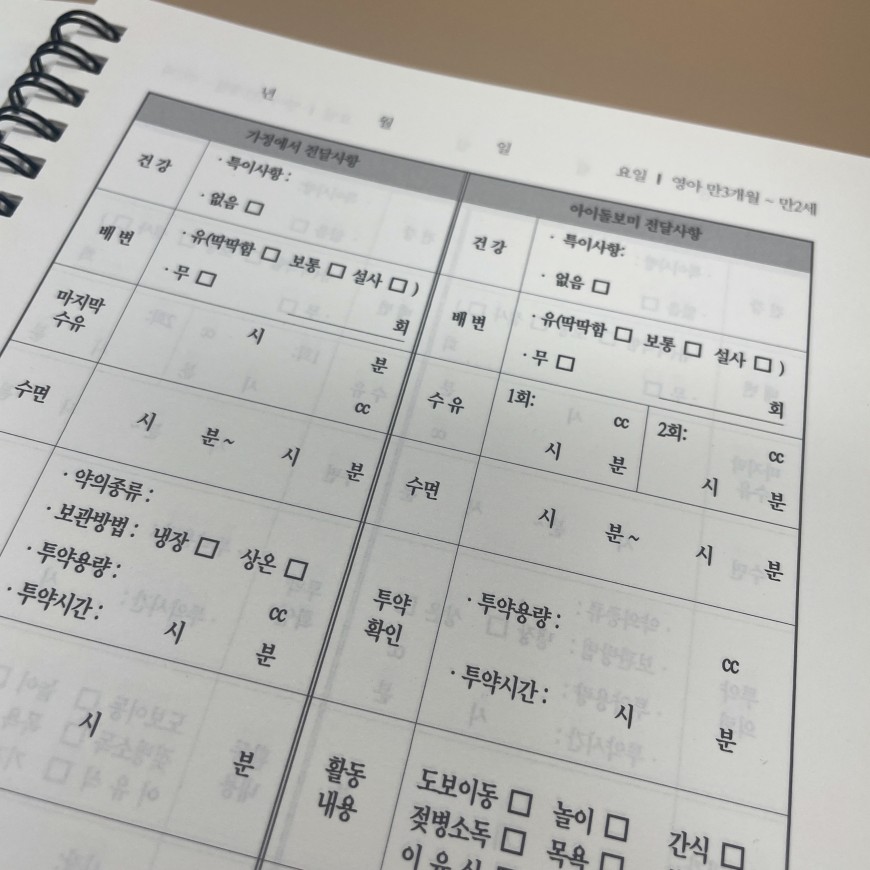 년 월 일 요일 | 영아 만3개월 ~ 만2세
가정에서 전달사항
건강
· 특이사항 :
· 없음 □
배변
· 유(딱딱함 □ 보통 □ 설사 □ )
· 무 □
회
마지막
수유
시 분
cc
수면
시 분 ~ 시 분
· 약의종류 :
· 보관방법 : 냉장 □ 상온 □
· 투약용량 :
cc
· 투약시간 :
시 분
시 분
아이돌보미 전달사항
건강
· 특이사항:
· 없음 □
배변
· 유(딱딱함 □ 보통 □ 설사 □ )
· 무 □
회
수유
1회:
cc
시 분
2회:
cc
시 분
수면
시 분 ~ 시 분
투약
확인
· 투약용량 :
cc
· 투약시간 :
시 분
활동
내용
도보이동 □ 놀이 □ 간식 □
젖병소독 □ 목욕 □